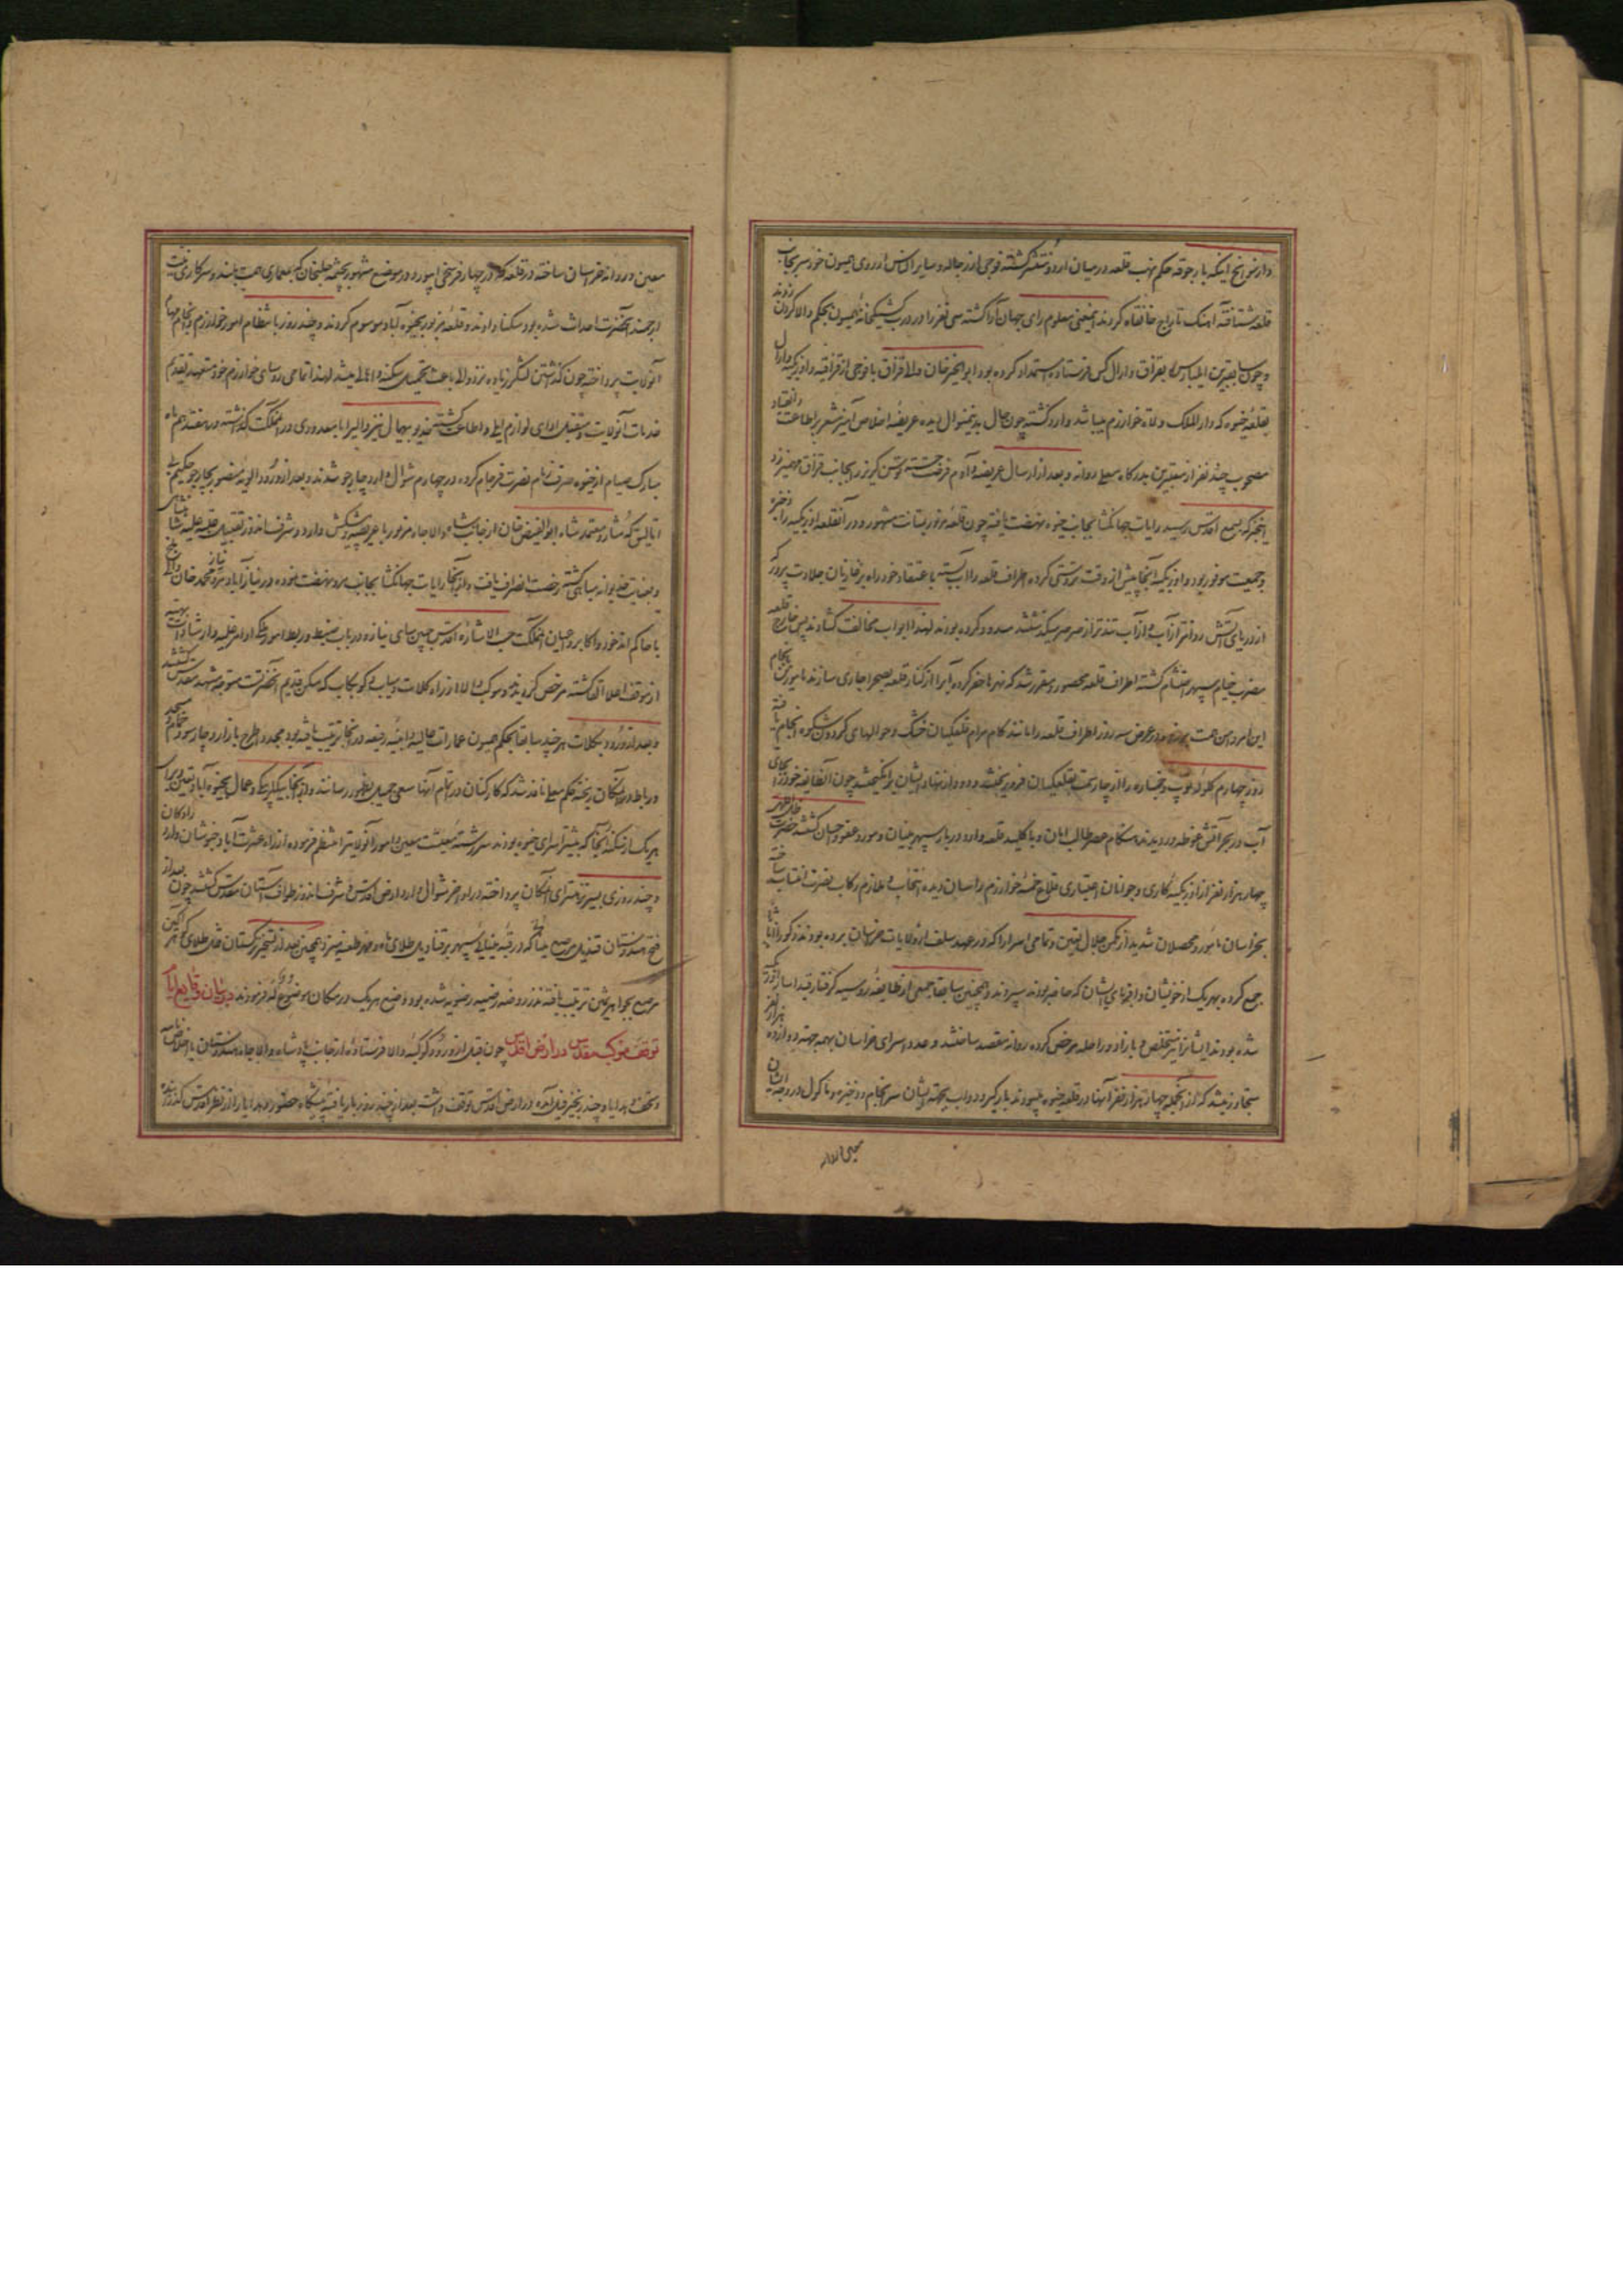 قلعه شتافته آهنک تاراج خانقاه کردند اینمعنی معلوم رای جهان آرا کشته سی نفر را در درب کشیکخانه همیون بحکم والا کردن زدند
و چون سابقا برین ایلبارس بقزاق و ارال کس فرستاده استمداد کرده بود ابوالخیر خان والا قزاق با فوجی از قزاقیه و اوزبکیه ارال
بقلعه خیوه که دارالملک ولاة خوارزم میباشد وارد کشته چون حال بدینمنوال دیده عریضه اخلاص آمیز مشعر بر اطاعت و انقیاد
مصحوب چند نفر از معتبرین بدرکاه معلی روانه و بعد از ارسال عریضه و آدم فرصت جسته توسن کریز را بجانب قزاق مهمیز زد
اینخبر که بسمع اقدس رسید رایات جهانکشا بجانب خیوه نهضت یافته چون قلعه مزبور بمتانت مشهور و در آنقلعه اوزبکیه را ذخیره
و جمعیت موفور بود و اوزبکیه آنجا پیش از وقت تردستی کرده اطراف قلعه را آب بسته باعتقاد خود راه بر غازیان جلادت پرور که
از دریای آتش روانتر از آب و از آب تندتر از صرصر میکذشتند مسدود کرده بودند لهذا ابواب مخالفت کشادند پس خارج قلعه
مضرب خیام سپهر احتشام کشته اطراف قلعه محصور و مقرر شد که نهرها حفر کرده آبرا از کنار قلعه بصحرا جاری سازند
این امر در عرض سه روز اطراف قلعه را مانند کام مرام قلعکیان خشک و حوالهای کردون شکوه انجام یافته
روز چهارم کلوله توپ و خمپاره را از چهار سمت بقلعکیان فرو ریختند و دود از نهاد ایشان برانکیختند چون آنطایفه خود را بجای
آب در بحر آتش غوطه ور دیدند هنکام عصر طالب امان و با کلید قلعه وارد دربار سپهر بنیان و مورد عفو و احسان کشتند
چهار هزار نفر از اوزبکیه کاری و جوانان اختیاری قلاع خمسه خوارزم را سان دیده انتخاب و ملازم رکاب نصرت انتساب ساخته
بخراسان مامور و محصلان شدید از مکمن جلال تعیین و تمامی اسرا را که در عهد سلف از ولایات خراسان برده بودند ذکورا و اناثا
جمع کرده بهر یک از خویشان و اقربای ایشان که حاضر بودند سپردند و همچنین سابقا جمعی از طایفه روسیه کرفتار قید اسار اوزبکیه
شده بودند ایشانرا نیز مستخلص و با زاد و راحله مرخص کرده روانه مقصد ساختند و عدد اسرای خراسان بهمه جهت دوازده هزار نفر
متجاوز میشد که از آنجمله چهار هزار نفر آنها در قلعه خیوه میبودند بارکیر و دواب بجهة ایشان سرانجام و ذخیره و ماکول در وجه ایشان
معین و روانه خراسان ساخته در قلعه که در چهار فرسخی ابیورد در موضع مشهور بچشمه خلنجان که بمعماری همت بلند و سرکاری
ارجمند آنحضرت احداث شده بود سکنا دادند و قلعه مزبور بخیوه آباد موسوم کردند و چند روز بانتظام امور خوارزم و انجام مهام
آنولایت پرداخته چون کذشتن لشکر زیاده بر دو ماه باعث تحمیل سکنه و اهالی میشد لهذا تمامی روسای خوارزم خود متعهد تقدیم
خدمات آنولایت و متقبل ادای لوازم ایلی و اطاعت کشته خدیو بیهمال نیز والیرا با معدودی در آنمملکت کذاشته در هفدهم ماه
مبارک صیام از خیوه صرف زمام نصرت فرجام کرده در چهارم شوال وارد چارجو شدند و بعد از ورود الویه منصور بچارجو حکیم بی
اتالیق که مشار و معتمد شاه ابوالفیض خان از جانب شاه والا جاه مزبور با عریضه و پیشکش وارد و شرف اندوز تقبیل عتبه علیه شاهنشاهی
و بعنایت خدیوانه مباهی کشته رخصت انصراف یافت و از آنجا رایات جهانکشا بجانب مرو نهضت نموده نیاز محمد خان والی بلخ
با حاکم اندخود و اکابر و اعیان آنمملکت حسب الاشاره اقدس جبین سای نیاز و در باب ضبط و ربط امور ملکی اوامر علیه و ارشادات بهیه
از موقف اعلا القا کشته مرخص کردیدند و موکب والا از راه کلات و میاب و کوبکاب که مسکن قدیم آنحضرت متوجه مشهد مقدس کشتند
و بعد از ورود بکلات هر چند سابقا بحکم همیون عمارات عالیه و ابنیه رفیعه در آنجا ترتیب یافته بود مجددا طرح بازار و چارسو و حمام و مسجد
و رباط در آنمکان ریخته حکم معلی نافذ شد که کارکنان در اتمام آنها سعی جمیل بظهور رسانند
هر یک از سکنه آنجا که بیشتر اسرای خیوه بودند سررشته معیشت معین و امور آنولایترا منتظم فرموده از راه عشرت آباد و خبوشان وارد رادکان
و چند روزی بسیر نزهت سرای آنمکان پرداخته در اواخر شوال وارد ارض اقدس و شرف اندوز طواف آستان مقدس کشتند چون بعد از
فتح هندوستان قندیل مرصع میناکار که در قبه مینای سپهر بر قنادیل طلای ماه و مهر طعنه میزد و همچنین بعد از تسخیر ترکستان قفل طلای کوهر آکین
مرصع بجواهر ثمین ترتیب یافته نذر روضه رضیه رضویه شده بود وضع هر یک در مکان موضوع له فرمودند در بیان وقایع ایام
توقف موکب مقدس در ارض اقدس چون قبل از ورود کوکبه والا فرستاده از جانب پادشاه والا جاه هندوستان با نامه
و تحف و هدایا و چند زنجیر فیل آمده در ارض اقدس توقف داشت بعد از چند روز باریافته پیشکاه حضور و هدایا را از نظر اقدس کذرانیده